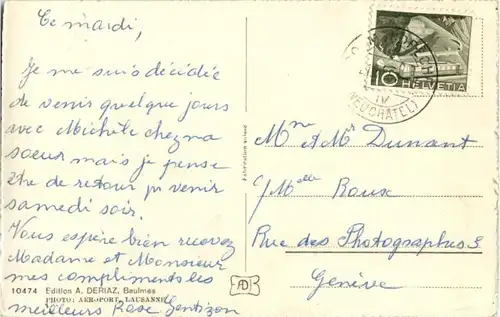 Ce mardi,
Je me suis décidée
de venir quelque jours
avec Michèle chez ma
soeur mais je pense
être de retour pr venir
samedi soir.
Vous espère bien recevez
Madame et Monsieur
mes compliments les
meilleurs Rose Gentizon
10474 Edition A. DERIAZ, Baulmes
PHOTO: AEROPORT, LAUSANNE
AD
Fabrication suisse
10 HELVETIA
IV
(NEUCHÂTEL)
Mme et Mr Dunant
c/Melle Roux
Rue des Photographes 3
Genève